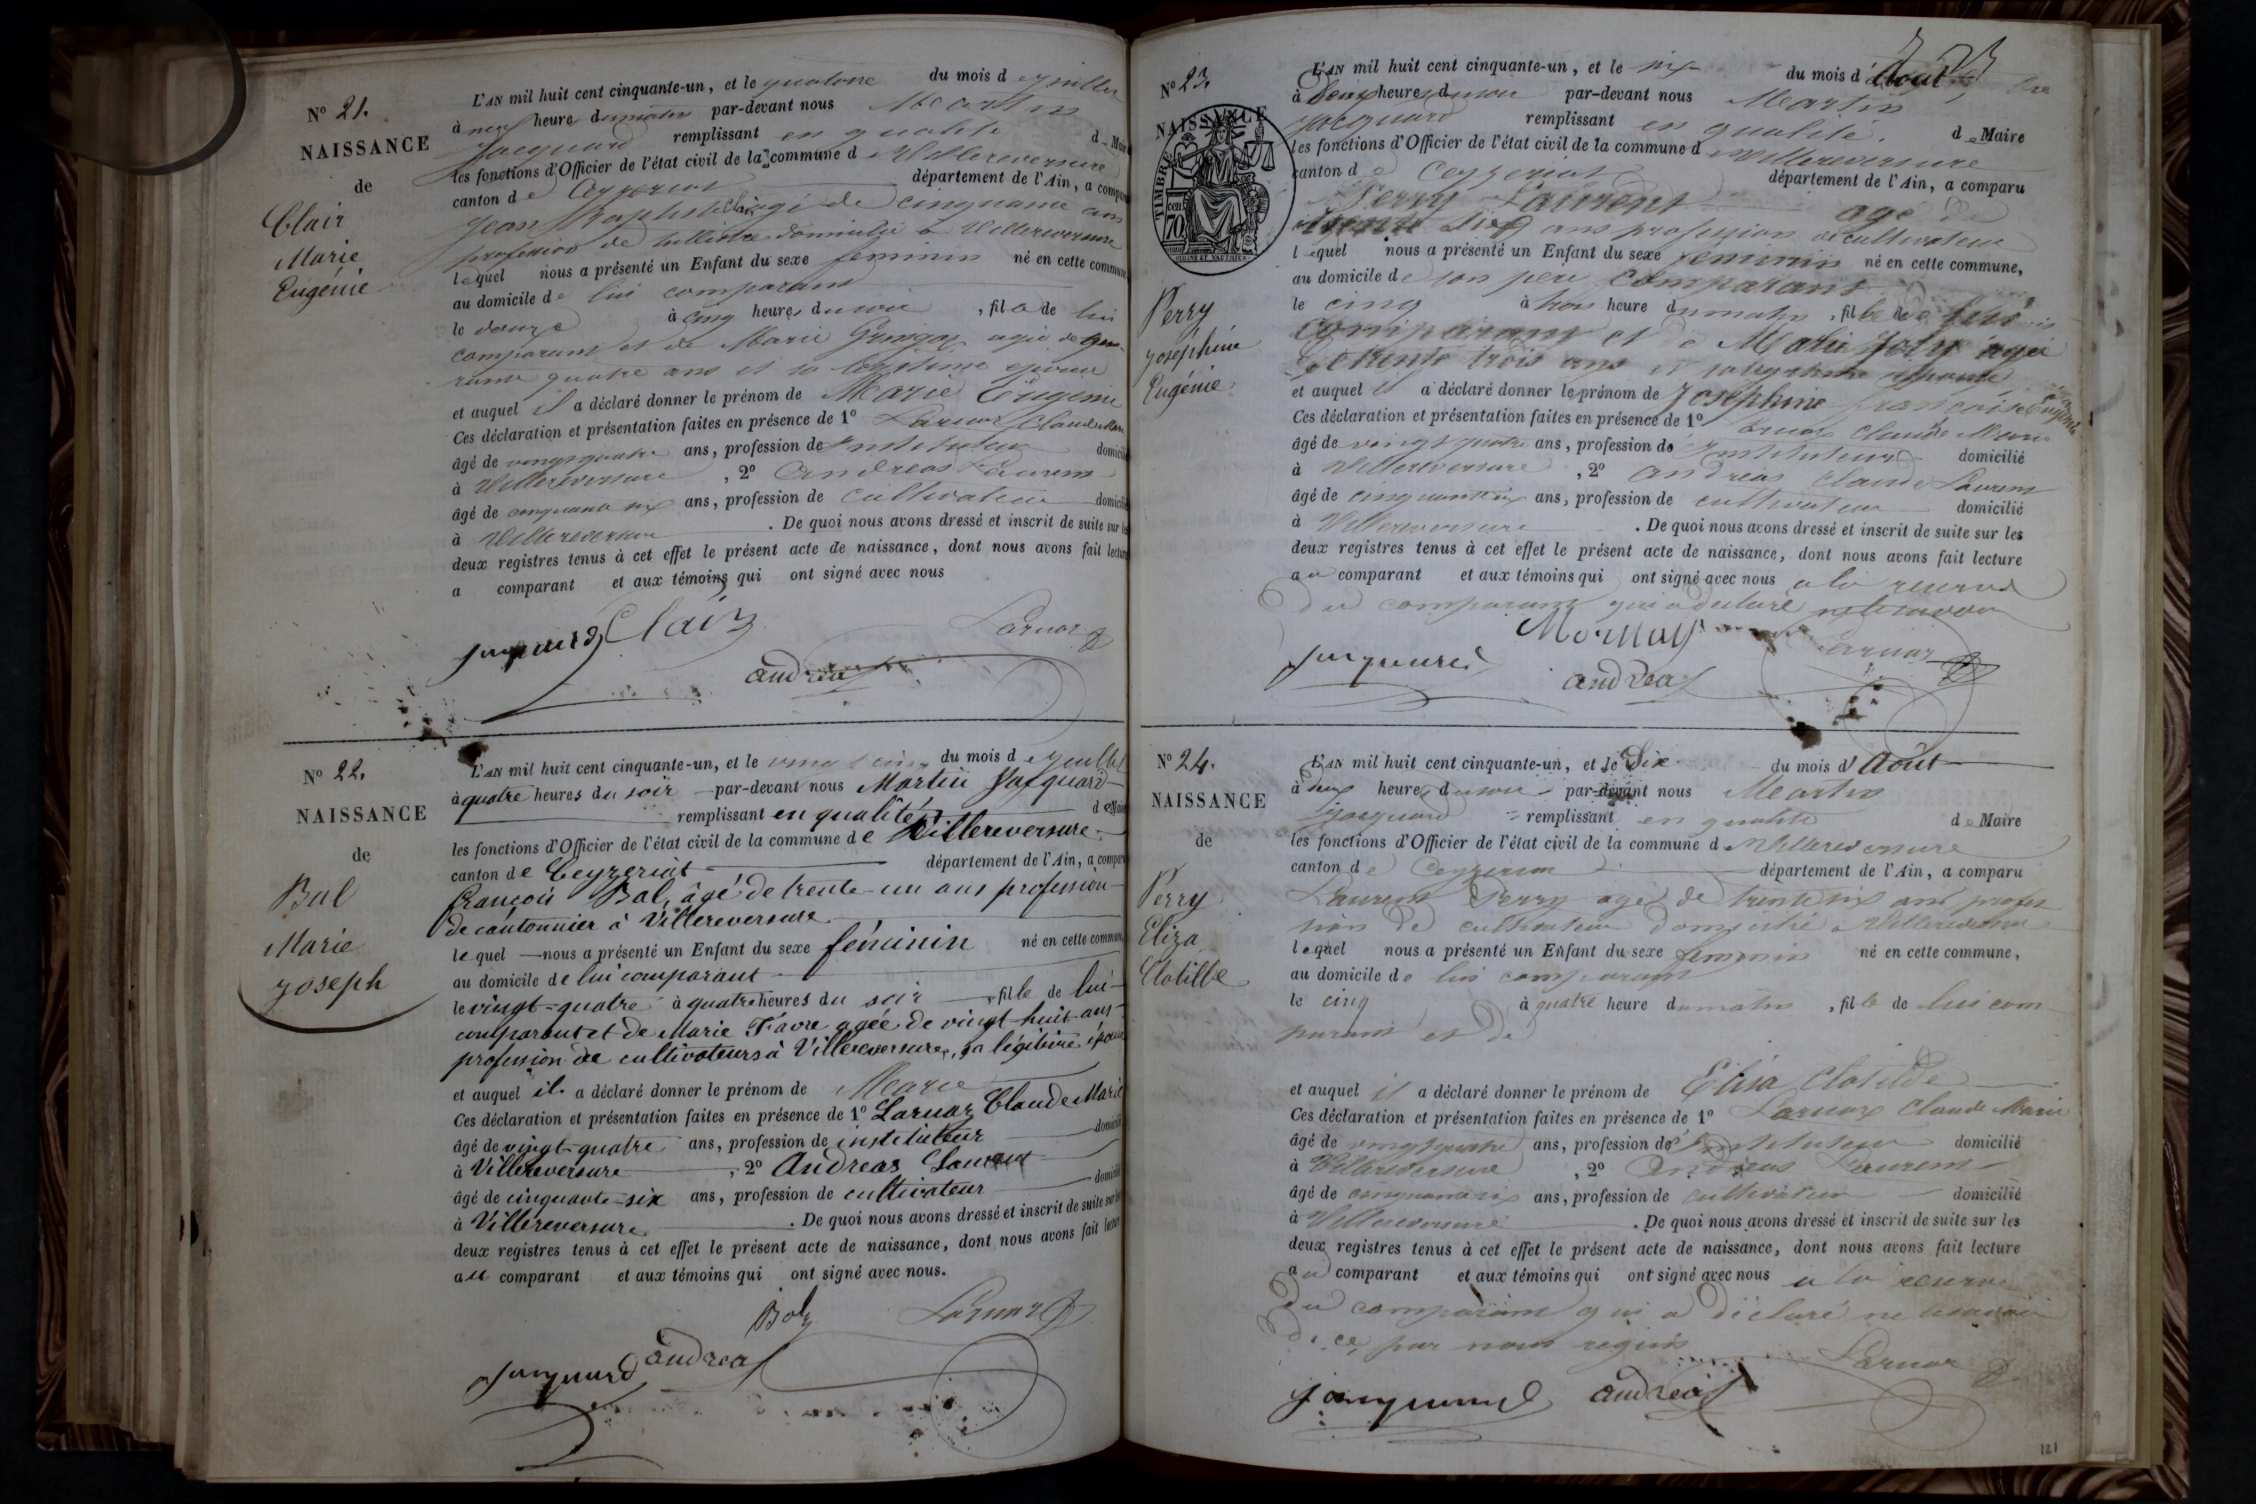 N° 21.
NAISSANCE
de
Clair
Marie
Eugénie
L'AN mil huit cent cinquante-un, et le quatorze du mois de juillet
à neuf heures du matin par-devant nous Martin
Jacquard remplissant en qualité de Maire
les fonctions d'Officier de l'état civil de la commune de Villereversure
canton de Ceyzeriat département de l'Ain, a comparu
Jean Baptiste Clair agé de cinquante ans
profession de domicilié à Villereversure
lequel nous a présenté un Enfant du sexe feminin né en cette commune
au domicile de lui comparant
le douze à cinq heures du soir, fille de lui
comparant et de Marie agée de qua-
rante quatre ans et sa légitime épouse
et auquel il a déclaré donner le prénom de Marie Eugénie
Ces déclaration et présentation faites en présence de 1° Laruaz Claude Marie
âgé de vingt quatre ans, profession de Instituteur domicilié
à Villereversure, 2° Andreas Laurent
âgé de cinquante six ans, profession de cultivateur domicilié
à Villereversure. De quoi nous avons dressé et inscrit de suite sur les
deux registres tenus à cet effet le présent acte de naissance, dont nous avons fait lecture
a comparant et aux témoins qui ont signé avec nous
Jacquard Clair Laruaz
andreas
N° 22.
NAISSANCE
de
Bal
Marie
Joseph
L'AN mil huit cent cinquante-un, et le vingt cinq du mois de juillet
à quatre heures du soir par-devant nous Martin Jacquard
remplissant en qualité de Maire
les fonctions d'Officier de l'état civil de la commune de Villereversure
canton de Ceyzeriat département de l'Ain, a comparu
françois Bal, âgé de trente-un ans profession
de cantonnier à Villereversure
lequel nous a présenté un Enfant du sexe féminin né en cette commune
au domicile de lui comparant
le vingt-quatre à quatre heures du soir, fille de lui
comparant et de Marie Favre agée de vingt-huit ans
profession de cultivateurs à Villereversure, sa légitime épouse
et auquel il a déclaré donner le prénom de Marie
Ces déclaration et présentation faites en présence de 1° Laruaz Claude Marie
âgé de vingt-quatre ans, profession de instituteur domicilié
à Villereversure, 2° Andreas Laurent
âgé de cinquante-six ans, profession de cultivateur domicilié
à Villereversure. De quoi nous avons dressé et inscrit de suite sur les
deux registres tenus à cet effet le présent acte de naissance, dont nous avons fait lecture
au comparant et aux témoins qui ont signé avec nous.
Bal Laruaz
Jacquard andreas
N° 23.
NAISSANCE
TIMBRE
70 cen
Perry
Joséphine
Eugénie
L'AN mil huit cent cinquante-un, et le six du mois d'Août
à deux heures du soir par-devant nous Martin
Jacquard remplissant en qualité de Maire
les fonctions d'Officier de l'état civil de la commune de Villereversure
canton de Ceyzeriat département de l'Ain, a comparu
Perry Laurent agé de
trente six ans profession de cultivateur
lequel nous a présenté un Enfant du sexe feminin né en cette commune,
au domicile de son pere comparant
le cinq à trois heure du matin, fille de lui
comparant et de Marie Joly agée
de trente trois ans et sa légitime épouse
et auquel il a déclaré donner le prénom de Josephine françoise Eugénie
Ces déclaration et présentation faites en présence de 1° Laruaz Claude Marie
âgé de vingt quatre ans, profession de Instituteur domicilié
à Villereversure, 2° andreas Claude Laurent
âgé de cinquante six ans, profession de cultivateur domicilié
à Villereversure. De quoi nous avons dressé et inscrit de suite sur les
deux registres tenus à cet effet le présent acte de naissance, dont nous avons fait lecture
au comparant et aux témoins qui ont signé avec nous a la reserve
du comparant qui a déclaré ne le savoir
Jacquard andreas Laruaz
N° 24.
NAISSANCE
de
Perry
Eliza
Clotilde
L'AN mil huit cent cinquante-un, et le Six du mois d'Août
à deux heures du soir par-devant nous Martin
Jacquard remplissant en qualité de Maire
les fonctions d'Officier de l'état civil de la commune de Villereversure
canton de Ceyzeriat département de l'Ain, a comparu
Laurent Perry agé de trente six ans profes
sion de cultivateur domicilié à Villereversure
lequel nous a présenté un Enfant du sexe feminin né en cette commune,
au domicile de lui comparant
le cinq à quatre heure du matin, fille de lui com
parant et de
et auquel il a déclaré donner le prénom de Elisa Clotilde
Ces déclaration et présentation faites en présence de 1° Laruaz Claude Marie
âgé de vingt quatre ans, profession de Instituteur domicilié
à Villereversure, 2° andreas Laurent
âgé de cinquante six ans, profession de cultivateur domicilié
à Villereversure. De quoi nous avons dressé et inscrit de suite sur les
deux registres tenus à cet effet le présent acte de naissance, dont nous avons fait lecture
au comparant et aux témoins qui ont signé avec nous a la reserve
du comparant qui a déclaré ne le savoir
de ce par nous requis
Jacquard andreas Laruaz
121